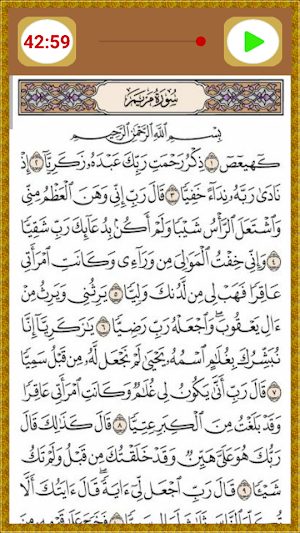 42:59
سُورَةُ مَرْيَمَ
بِسْمِ ٱللَّهِ ٱلرَّحْمَٰنِ ٱلرَّحِيمِ
كٓهيعٓصٓ ١ ذِكْرُ رَحْمَتِ رَبِّكَ عَبْدَهُۥ زَكَرِيَّآ ٢ إِذْ
نَادَىٰ رَبَّهُۥ نِدَآءً خَفِيًّا ٣ قَالَ رَبِّ إِنِّى وَهَنَ ٱلْعَظْمُ مِنِّى
وَٱشْتَعَلَ ٱلرَّأْسُ شَيْبًا وَلَمْ أَكُنۢ بِدُعَآئِكَ رَبِّ شَقِيًّا
٤ وَإِنِّى خِفْتُ ٱلْمَوَٰلِىَ مِن وَرَآءِى وَكَانَتِ ٱمْرَأَتِى
عَاقِرًا فَهَبْ لِى مِن لَّدُنكَ وَلِيًّا ٥ يَرِثُنِى وَيَرِثُ مِنْ
ءَالِ يَعْقُوبَ ۖ وَٱجْعَلْهُ رَبِّ رَضِيًّا ٦ يَٰزَكَرِيَّآ إِنَّا
نُبَشِّرُكَ بِغُلَٰمٍ ٱسْمُهُۥ يَحْيَىٰ لَمْ نَجْعَل لَّهُۥ مِن قَبْلُ سَمِيًّا
٧ قَالَ رَبِّ أَنَّىٰ يَكُونُ لِى غُلَٰمٌ وَكَانَتِ ٱمْرَأَتِى عَاقِرًا
وَقَدْ بَلَغْتُ مِنَ ٱلْكِبَرِ عِتِيًّا ٨ قَالَ كَذَٰلِكَ قَالَ
رَبُّكَ هُوَ عَلَىَّ هَيِّنٌ وَقَدْ خَلَقْتُكَ مِن قَبْلُ وَلَمْ تَكُ
شَيْـًٔا ٩ قَالَ رَبِّ ٱجْعَل لِّىٓ ءَايَةً ۚ قَالَ ءَايَتُكَ أَلَّا